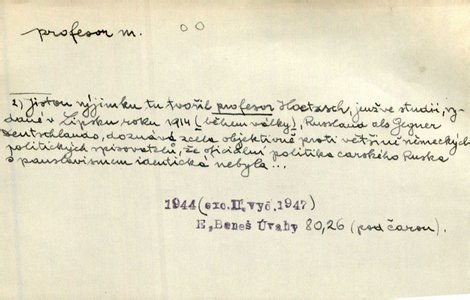 profesor m.
2) Jistou výjimku tu tvořil profesor Hoetzsch, jenž ve studii, vy-
dané v Lipsku roku 1914 (během války), Russland als Gegner
Deutschlands, doznává zcela objektivně proti většině německých
politických spisovatelů, že oficielní politika carského Ruska
s panslavismem identická nebyla...
1944 (exc. II. vyd. 1947)
E. Beneš Úvahy 80,26 (pod čarou).